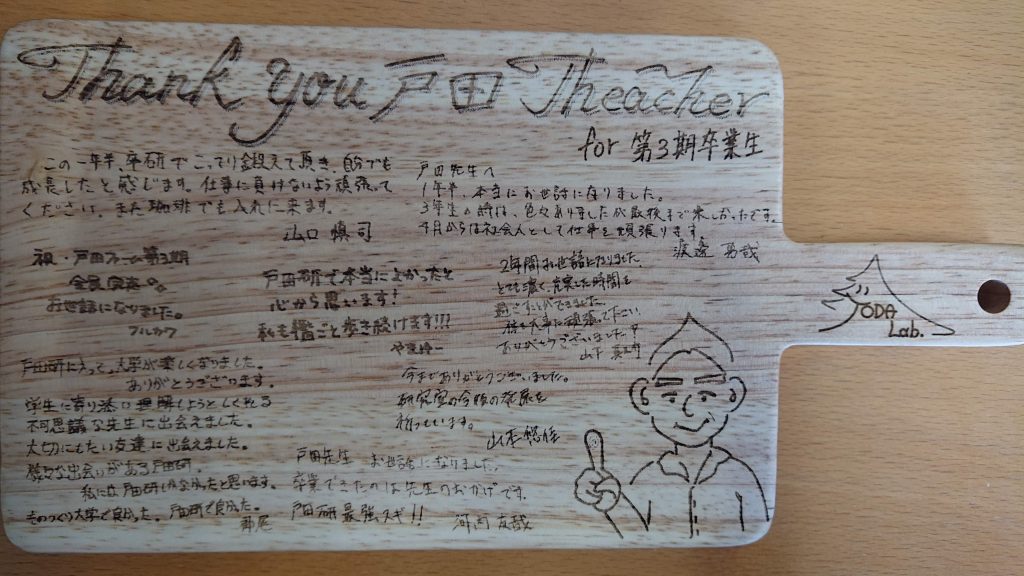 Thank you 戸田 Theacher
for 第3期卒業生
この一年半、卒研でこってり鍛えて頂き、自分でも
成長したと感じます。仕事に負けないよう頑張って
ください。また珈琲でも入れに来ます。
山口 慎司
戸田先生へ
1年半、本当にお世話になりました。
3年生の時は、色々ありましたが最後まで楽しかったです。
4月からは社会人として仕事を頑張ります。
渡邊 勇哉
祝・戸田ファーム第3期
全員
お世話になりました。
フルカワ
戸田研で本当によかったと
心から思います!
私も一歩ごと歩き続けます!!!
2年間お世話になりました。
とても濃く充実した時間を
過ごすことができました。
ありがとうございました
山下
戸田研に入って、大学が楽しくなりました。
ありがとうございます。
学生に寄り添い理解しようとしてくれる
不可思議な先生に出会えました。
大切にしたい友達に出会えました。
様々な出会いがある戸田研。
私には戸田研しかなかったと思います。
ものつくり大学で良かった。戸田研で良かった。
今までありがとうございました。
研究室の今後の発展を
祈っています。
山本 悠佳
戸田先生 お世話になりました。
卒業できたのは先生のおかげです。
戸田研最強スギ!!
河内 友哉
TODA
Lab.